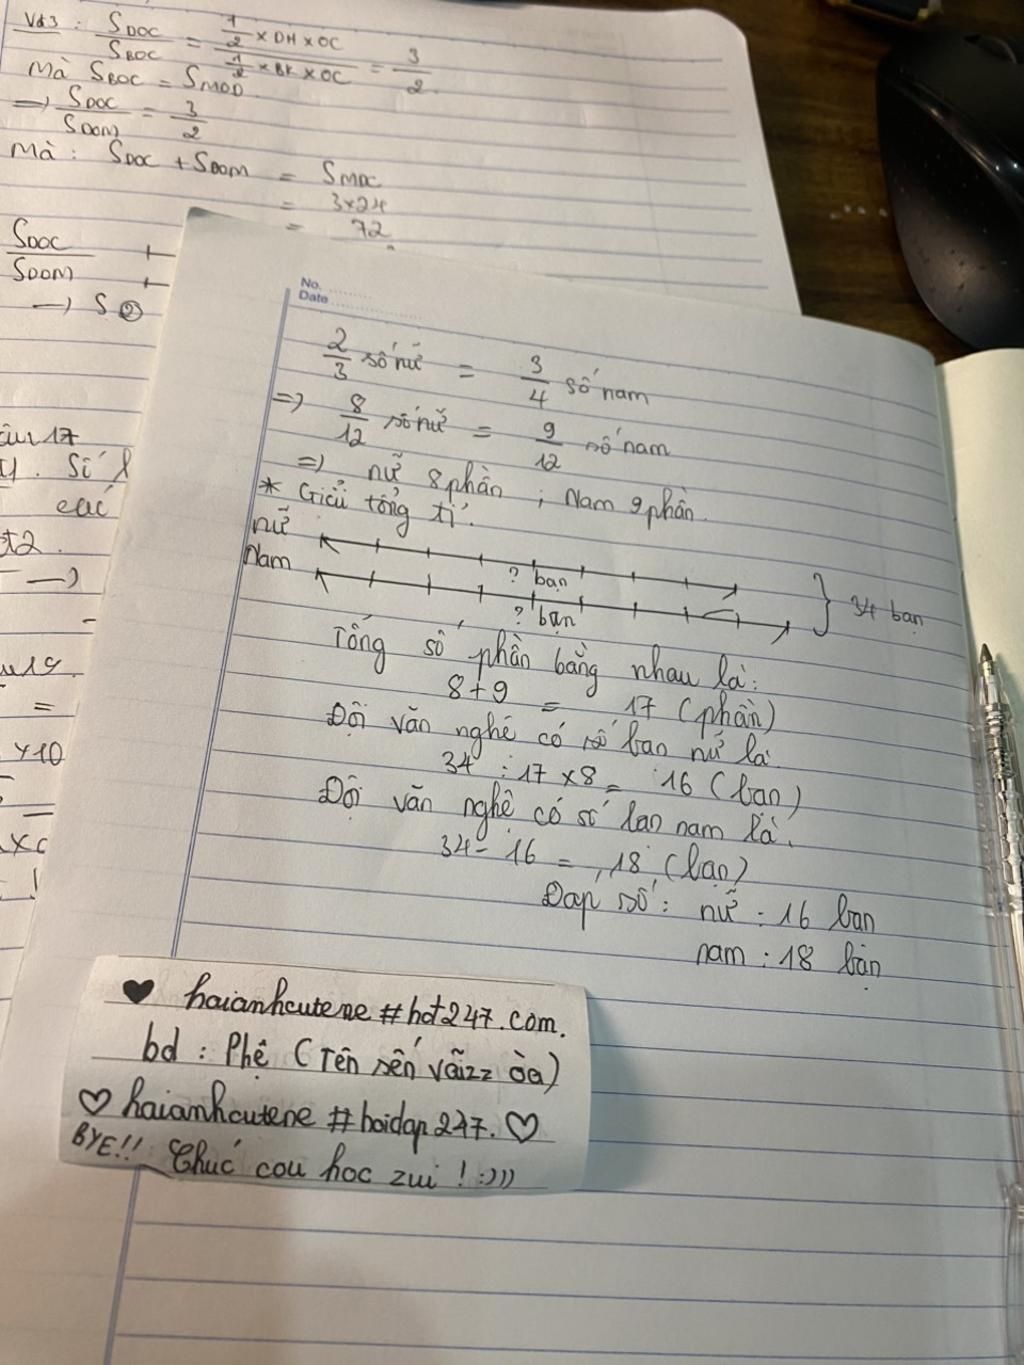 Vd3 : SDOC / SBOC = 1/2 × DH × OC / 1/2 × BK × OC = 3/2
Mà SBOC = SMOD
=> SDOC / SDOM = 3/2
Mà : SDOC + SDOM = SMDC
= 3×24
= 72
SDOC
SDOM
—> S
17
Số
các
2.
—)
19.
=
×10
No.
Date
2/3 số nữ = 3/4 số nam
=> 8/12 số nữ = 9/12 số nam
=> nữ 8 phần ; Nam 9 phần.
* Giải tổng tỉ.
nữ
Nam
? bạn
? bạn
34 bạn
Tổng số phần bằng nhau là:
8+9 = 17 (phần)
Đội văn nghệ có số bạn nữ là
34 : 17 × 8 = 16 (bạn)
Đội văn nghệ có số bạn nam là.
34 - 16 = 18 (bạn)
Đáp số : nữ : 16 bạn
nam : 18 bạn
♥ haianhcutene #hdt247.com.
bd : Phệ (Tên sến vãizz òa)
♡ haianhcutene #hoidap247. ♡
BYE!! Chúc cou học zui ! :)))